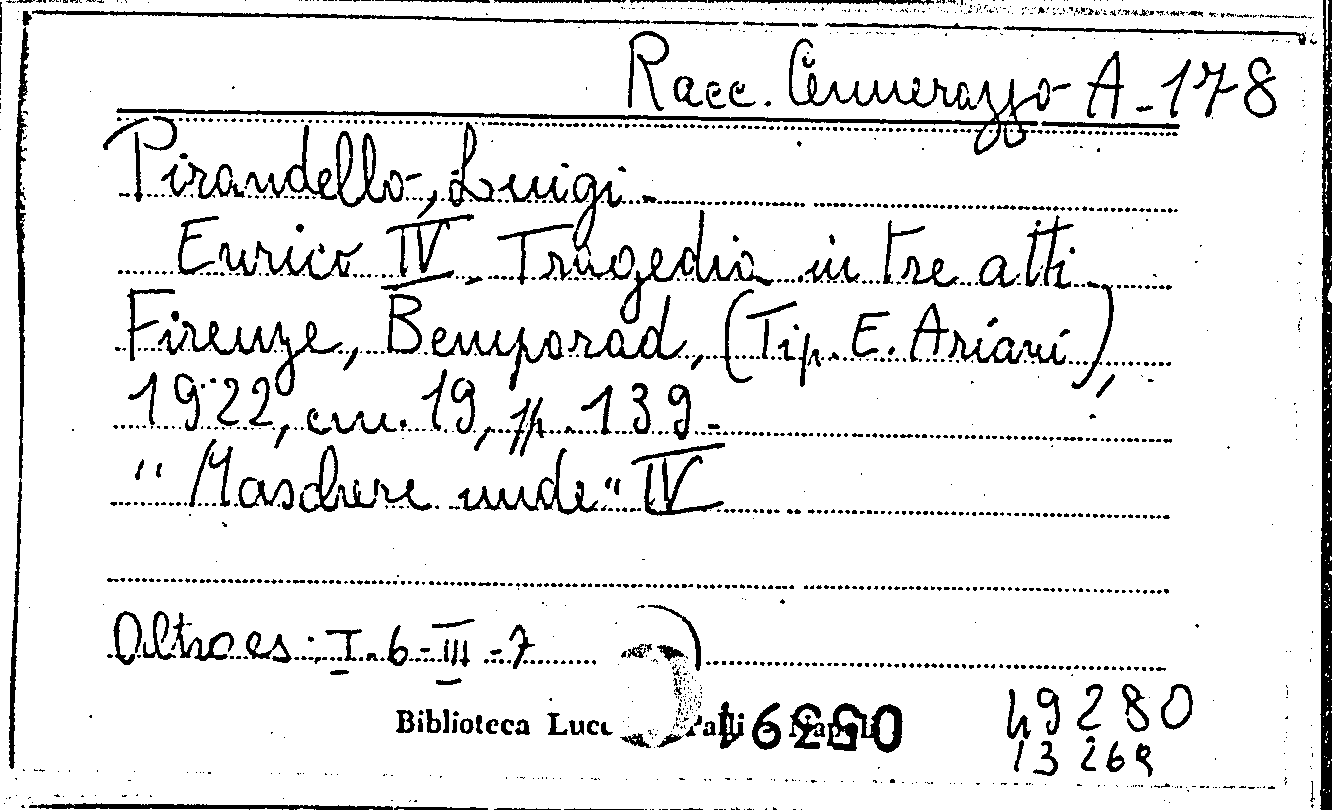 Racc. Cennerazzo A-178
Pirandello, Luigi.
Enrico IV. Tragedia in tre atti.
Firenze, Bemporad, (Tip. E. Ariani),
1922, cm. 19, pp. 139.
"Maschere nude" IV
Altro es: I.6-III-7
Biblioteca Lucc Palli - Napoli
055394
49280
13269